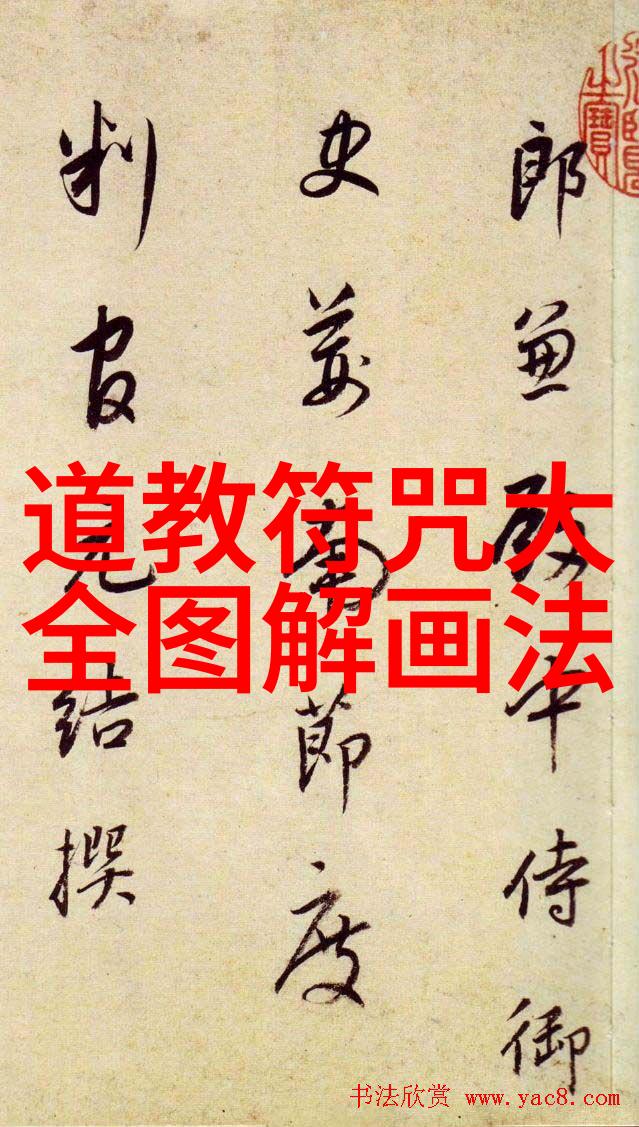 郎兼殿中侍御
史荊南節度
判官元結撰
道教符咒大
全图解画法
书法欣赏 www.yac8.com